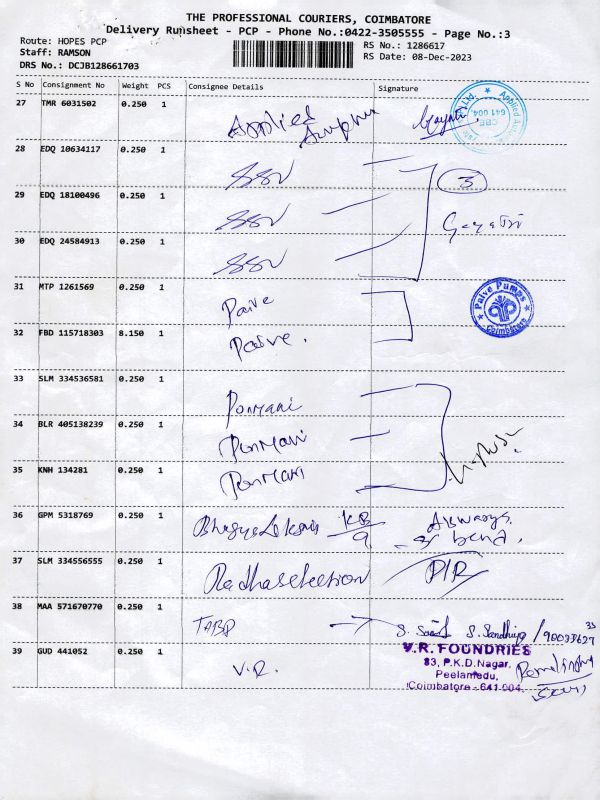 THE PROFESSIONAL COURIERS, COIMBATORE
Delivery Runsheet - PCP - Phone No.:0422-3505555 - Page No.:3
Route: HOPES PCP
RS No.: 1286617
Staff: RAMSON
RS Date: 08-Dec-2023
DRS No.: DCJB128661703
S No Consignment No Weight PCS Consignee Details Signature
27 TMR 6031502 0.250 1 Applied
Gayatri
28 EDQ 10634117 0.250 1 SSV
3
29 EDQ 18100496 0.250 1 SSV
Gayatri
30 EDQ 24584913 0.250 1 SSV
31 MTP 1261569 0.250 1 Paive
Paive Pumps Coimbatore
32 FBD 115718303 8.150 1 Paive.
33 SLM 334536581 0.250 1 Ponmani
34 BLR 405138239 0.250 1 Ponmani
35 KNH 134281 0.250 1 Ponmani
36 GPM 5318769 0.250 1
37 SLM 334556555 0.250 1 Radhaselection
38 MAA 571670770 0.250 1
S. Sandhiya
39 GUD 441052 0.250 1 V.R.
V.R. FOUNDRIES
83, P.K.D.Nagar,
Peelamedu,
Coimbatore - 641 004.